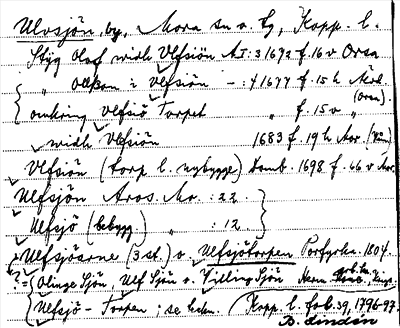 Ulvsjön, by, Mora sn o. tg, Kopp. l.
Styg Olof widh Ulfsiön AI:3 1672 f. 16 v Orsa
" Ulfsiön - :4 1677 f. 15
omkring Ulfsiö Torpet " f. 15 v "
widh Ulfsiön 1683 f. 19
Ulfsiön (torp l. nybygge) Domb. 1698 f. 66 v Mor.
Ulfsjön Aros. Mr. : 22.
Ulfsjö (bebygg) " : 12.
Ulfsjöarne (3 st.) o. Ulfsjötorpen Porfyrkr. 1804.
?= Olinge Sjön, Ulf Sjön o. Tilling Sjön
Ulfsjö - Torpen : se
Kopp. l. fol. 39, 1796-97.
B. Lindén